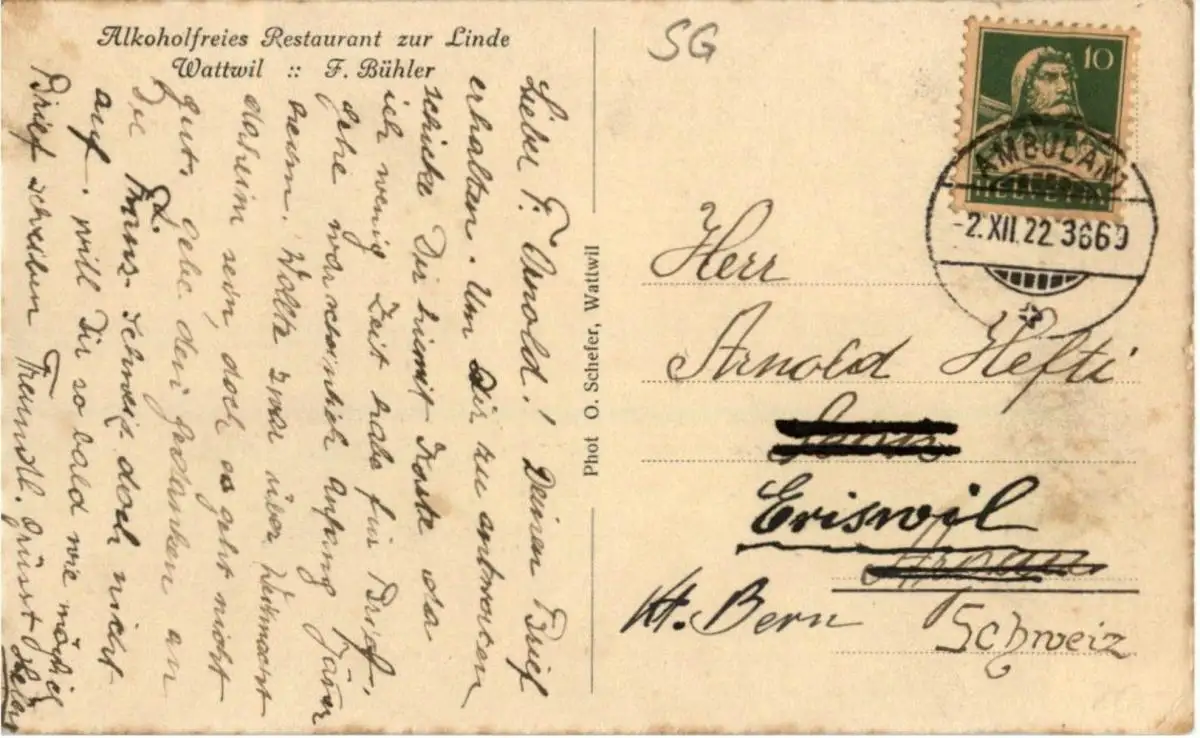 Alkoholfreies Restaurant zur Linde
Wattwil :: F. Bühler
SG
10
AMBULANT
-2.XII.22 3669
Phot O. Schefer, Wattwil
Lieber F. Arnold! Deinen Brief
erhalten. Um Dir zu antworten
schicke Dir hiemit Karte da
ich wenig Zeit habe für Brief.
gehe warscheinlich anfang Jäner
heim. Wollte zwar über Weihnacht
daheim sein, doch es geht nicht
gut. Gebe den gedanken an
die franz. Schweiz doch nicht
auf. will Dir so bald wie möglich
Brief schreiben Freundl. Grüsst
Herr
Arnold Hefti
Eriswil
Kt. Bern
Schweiz